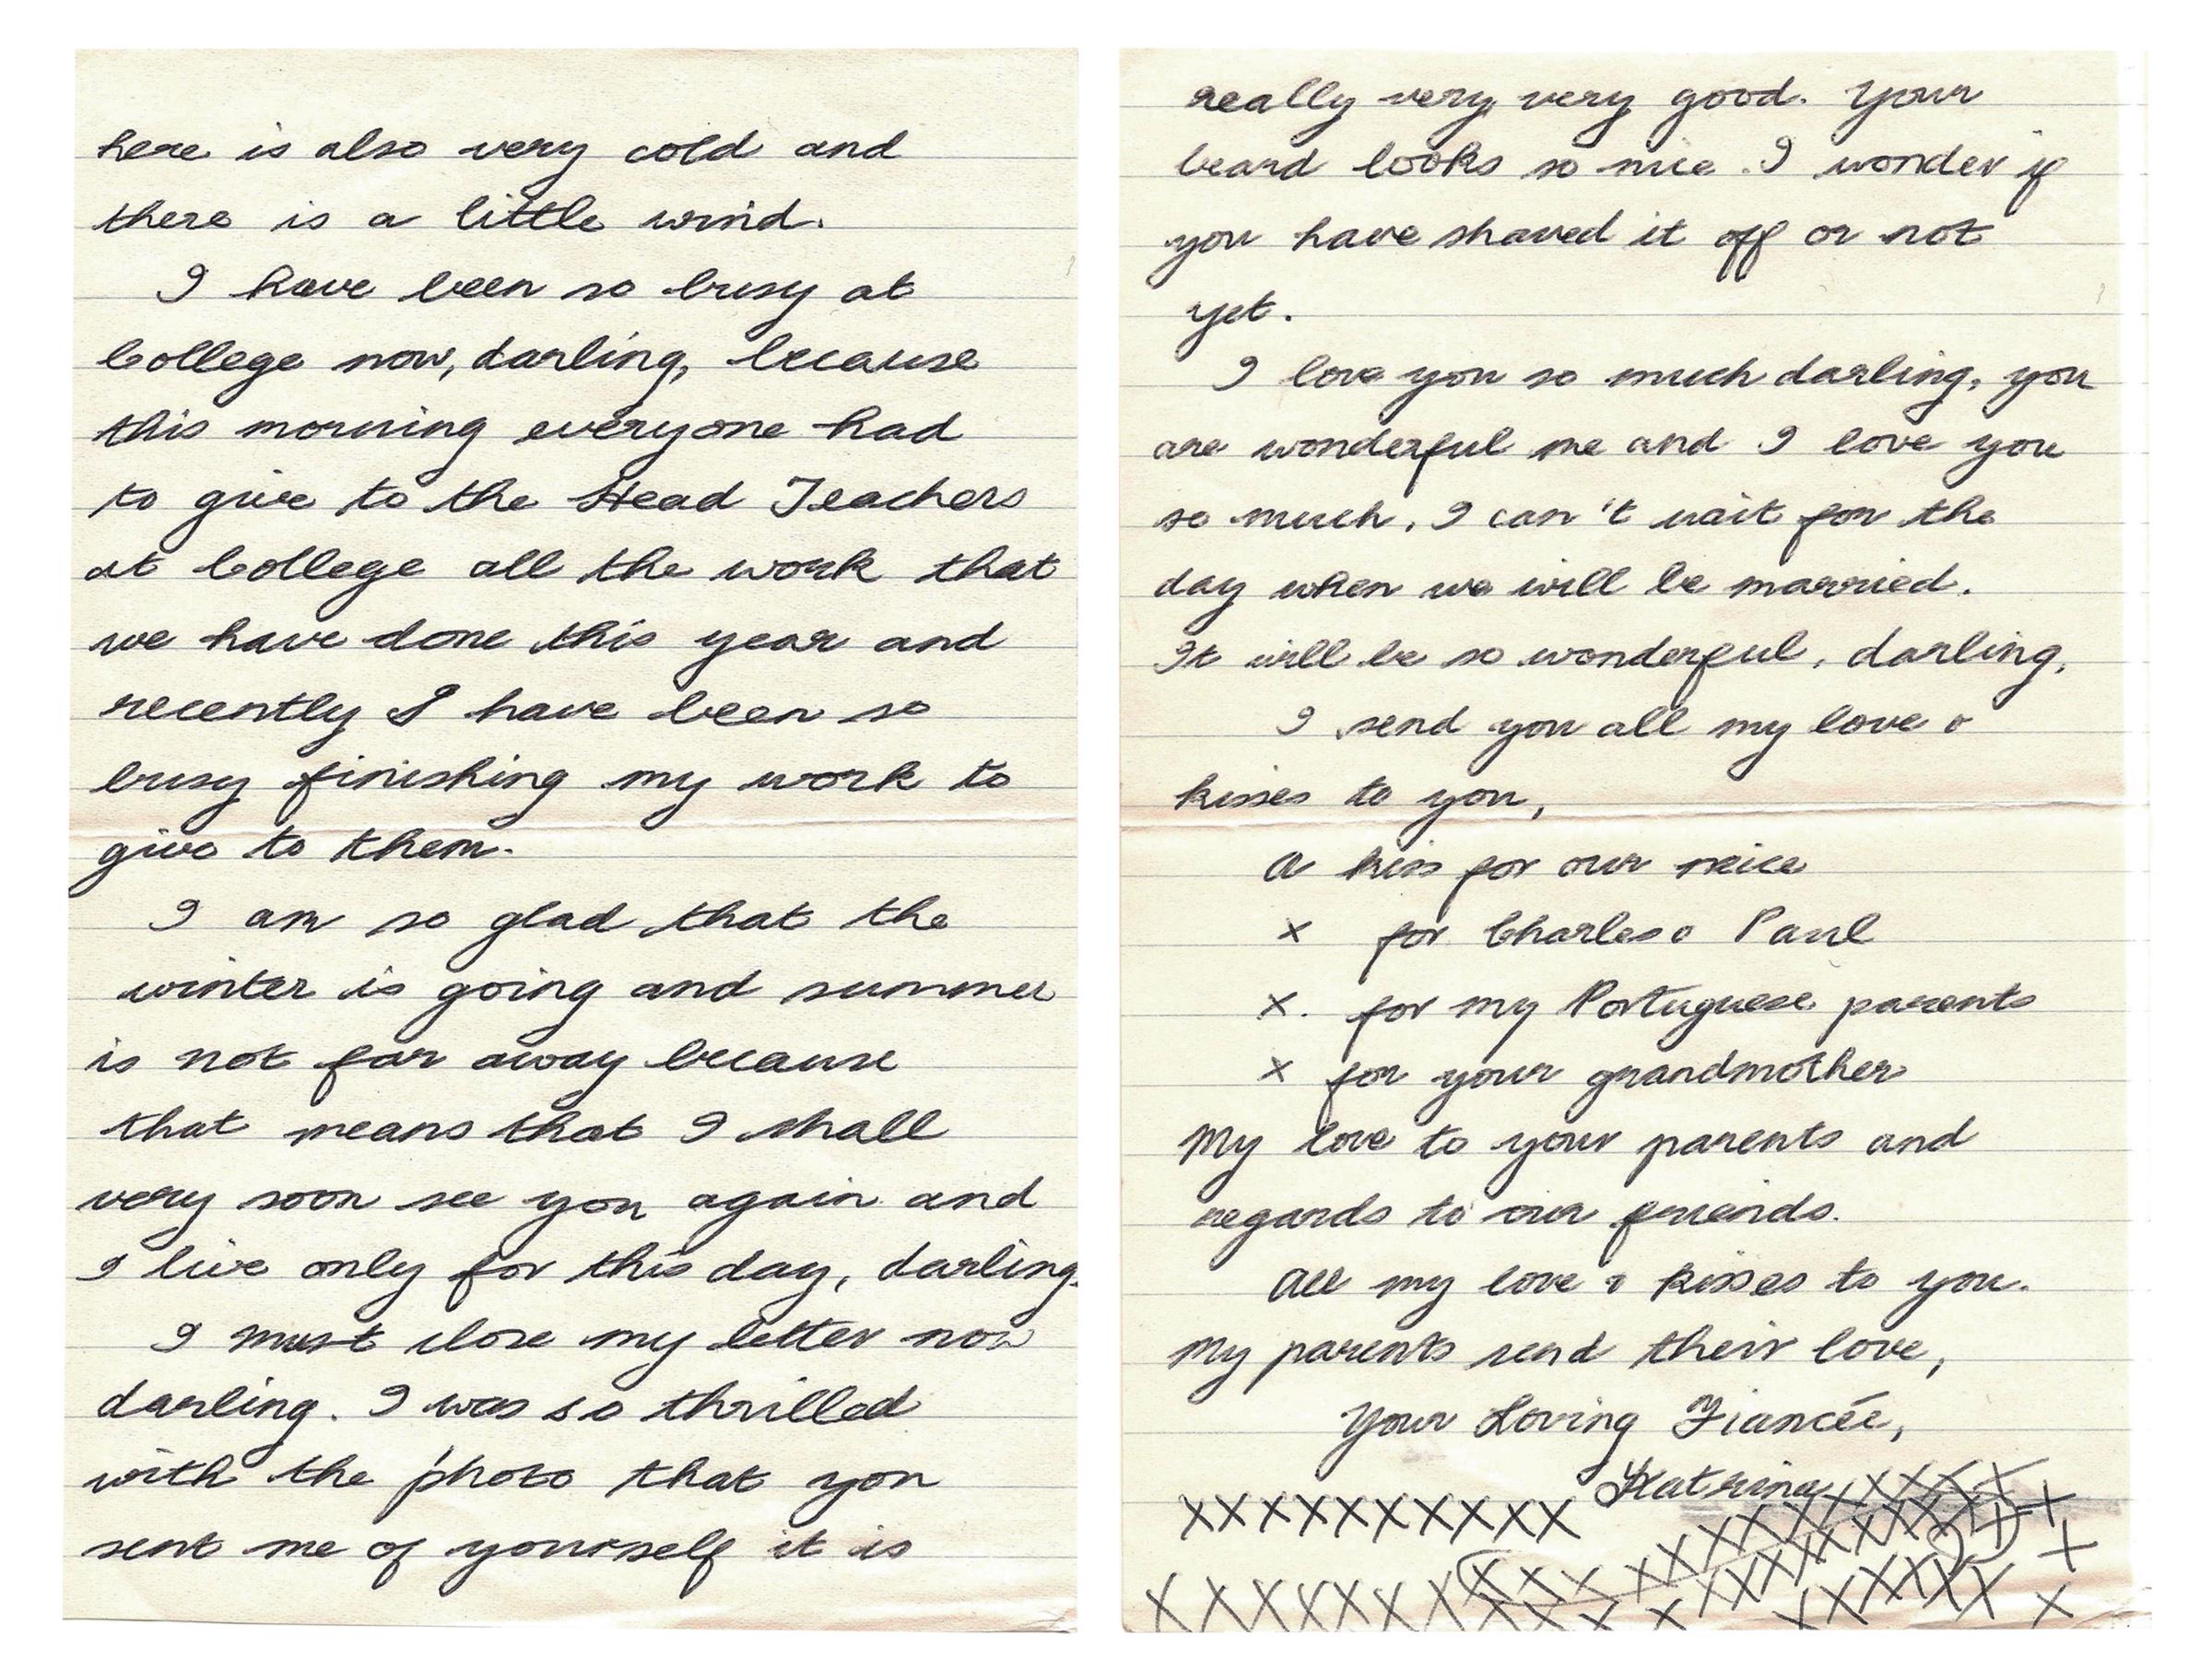 here is also very cold and
there is a little wind.
I have been so busy at
College now, darling, because
this morning everyone had
to give to the Head Teachers
at College all the work that
we have done this year and
recently I have been so
busy finishing my work to
give to them.
I am so glad that the
winter is going and summer
is not far away because
that means that I shall
very soon see you again and
I live only for this day, darling.
I must close my letter now
darling. I was so thrilled
with the photo that you
sent me of yourself it is
really very very good. Your
beard looks so nice. I wonder if
you have shaved it off or not
yet.
I love you so much darling, you
are wonderful me and I love you
so much, I can't wait for the
day when we will be married.
It will be so wonderful, darling,
I send you all my love &
kisses to you,
A kiss for our neice
x for Charles & Paul
x. for my Portuguese parents
x for your grandmother
My love to your parents and
regards to our friends.
All my love & kisses to you.
My parents send their love,
Your Loving Fiancée,
Katrina xxxxx
xxxxxxxxxxx